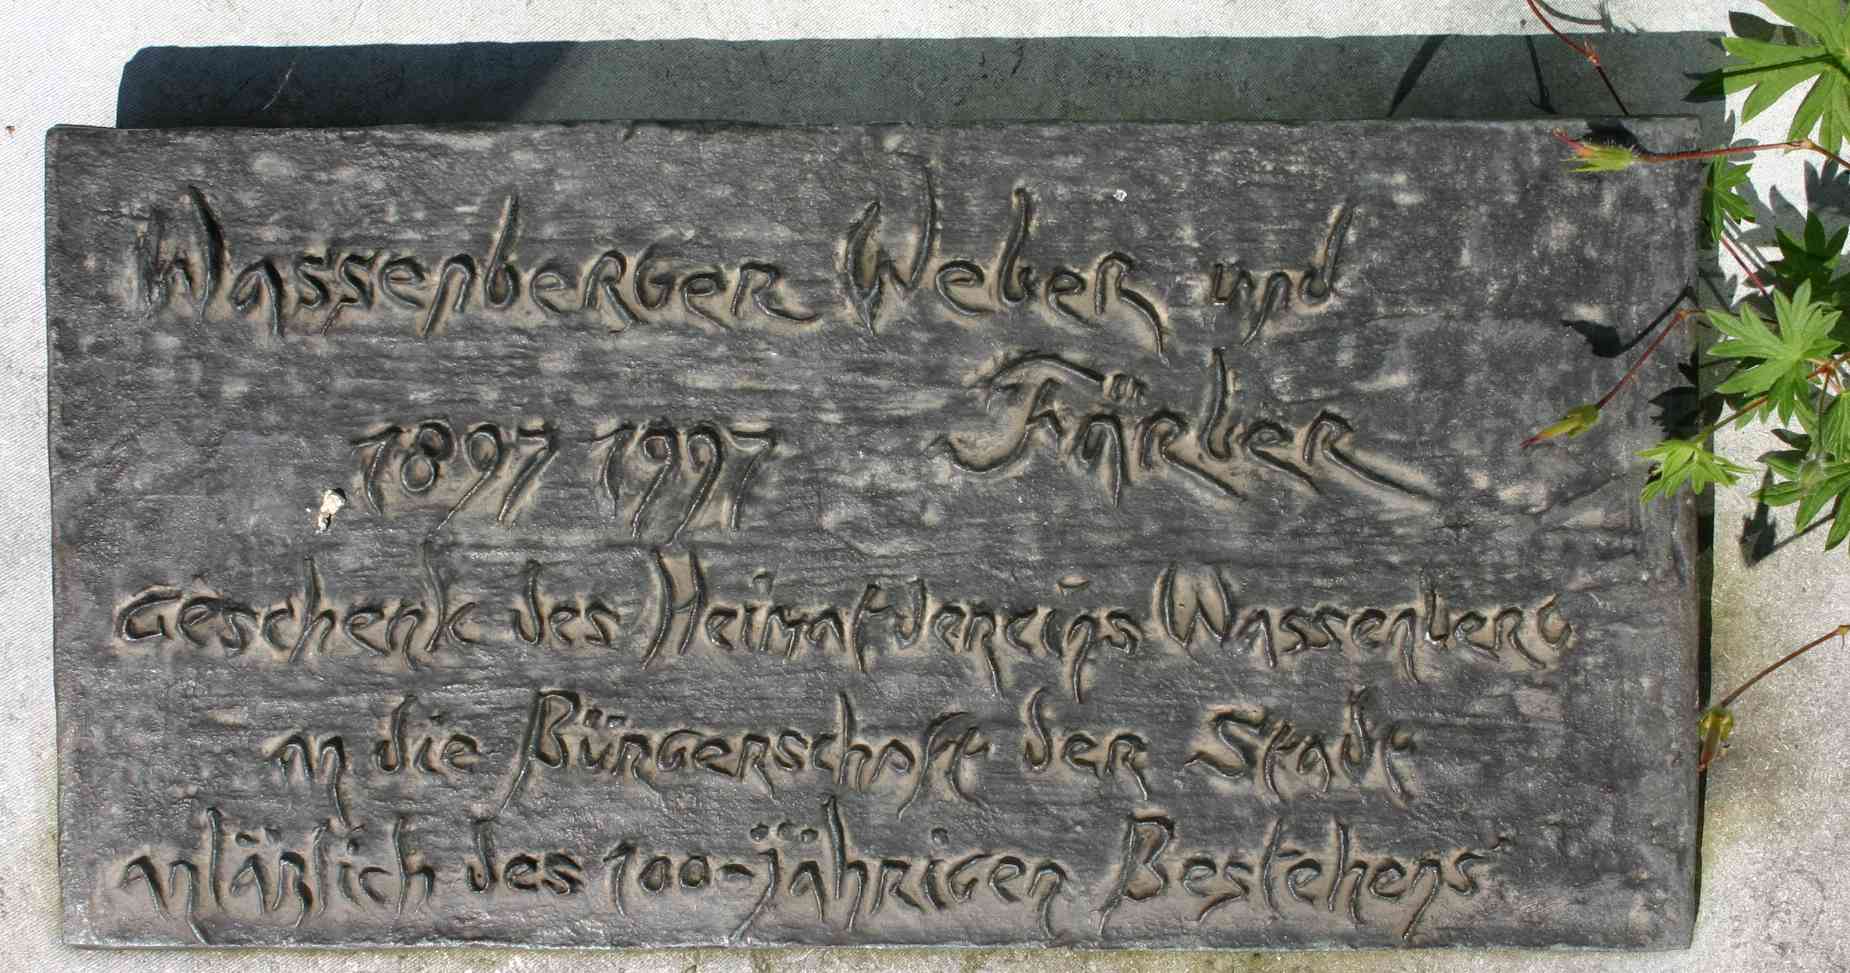 Wassenberger Weber und
1897 1997 Färber
Geschenk des Heimatvereins Wassenberg
an die Bürgerschaft der Stadt
anläßlich des 100-jährigen Bestehens